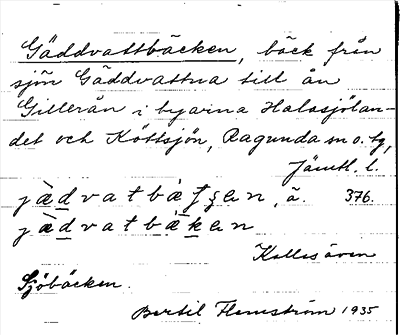 Gäddvattbäcken, bäck från
sjön Gäddvattna till ån
Gillerån i byarna Halasjölan-
det och Köttsjön, Ragunda sn o. tg,
Jämtl. l.
jæ̀dvatbæ̀ʃʂen, ä. 376.
jæ̀dvatbæ̀ken
Kallas även
Sjöbäcken.
Bertil Flemström 1935